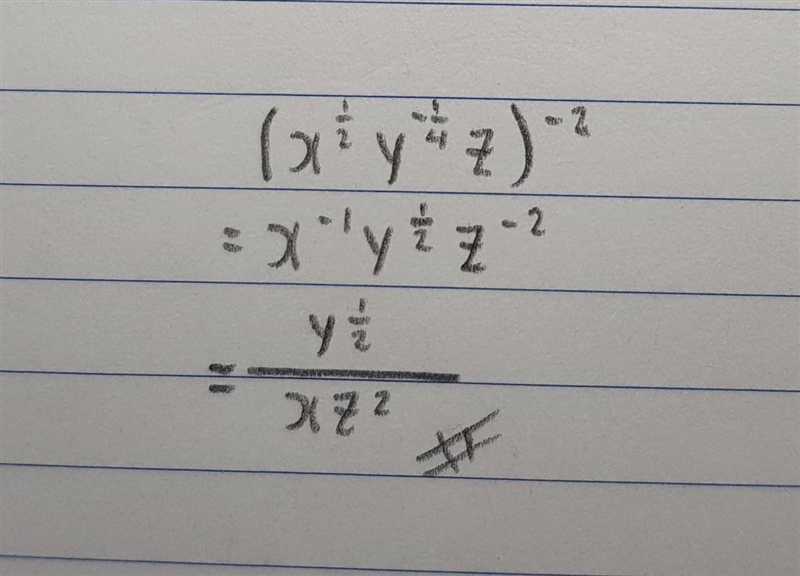 (x^{\frac{1}{2}} y^{-\frac{1}{4}} z)^{-2}
= x^{-1} y^{\frac{1}{2}} z^{-2}
= \frac{y^{\frac{1}{2}}}{x z^{2}} #